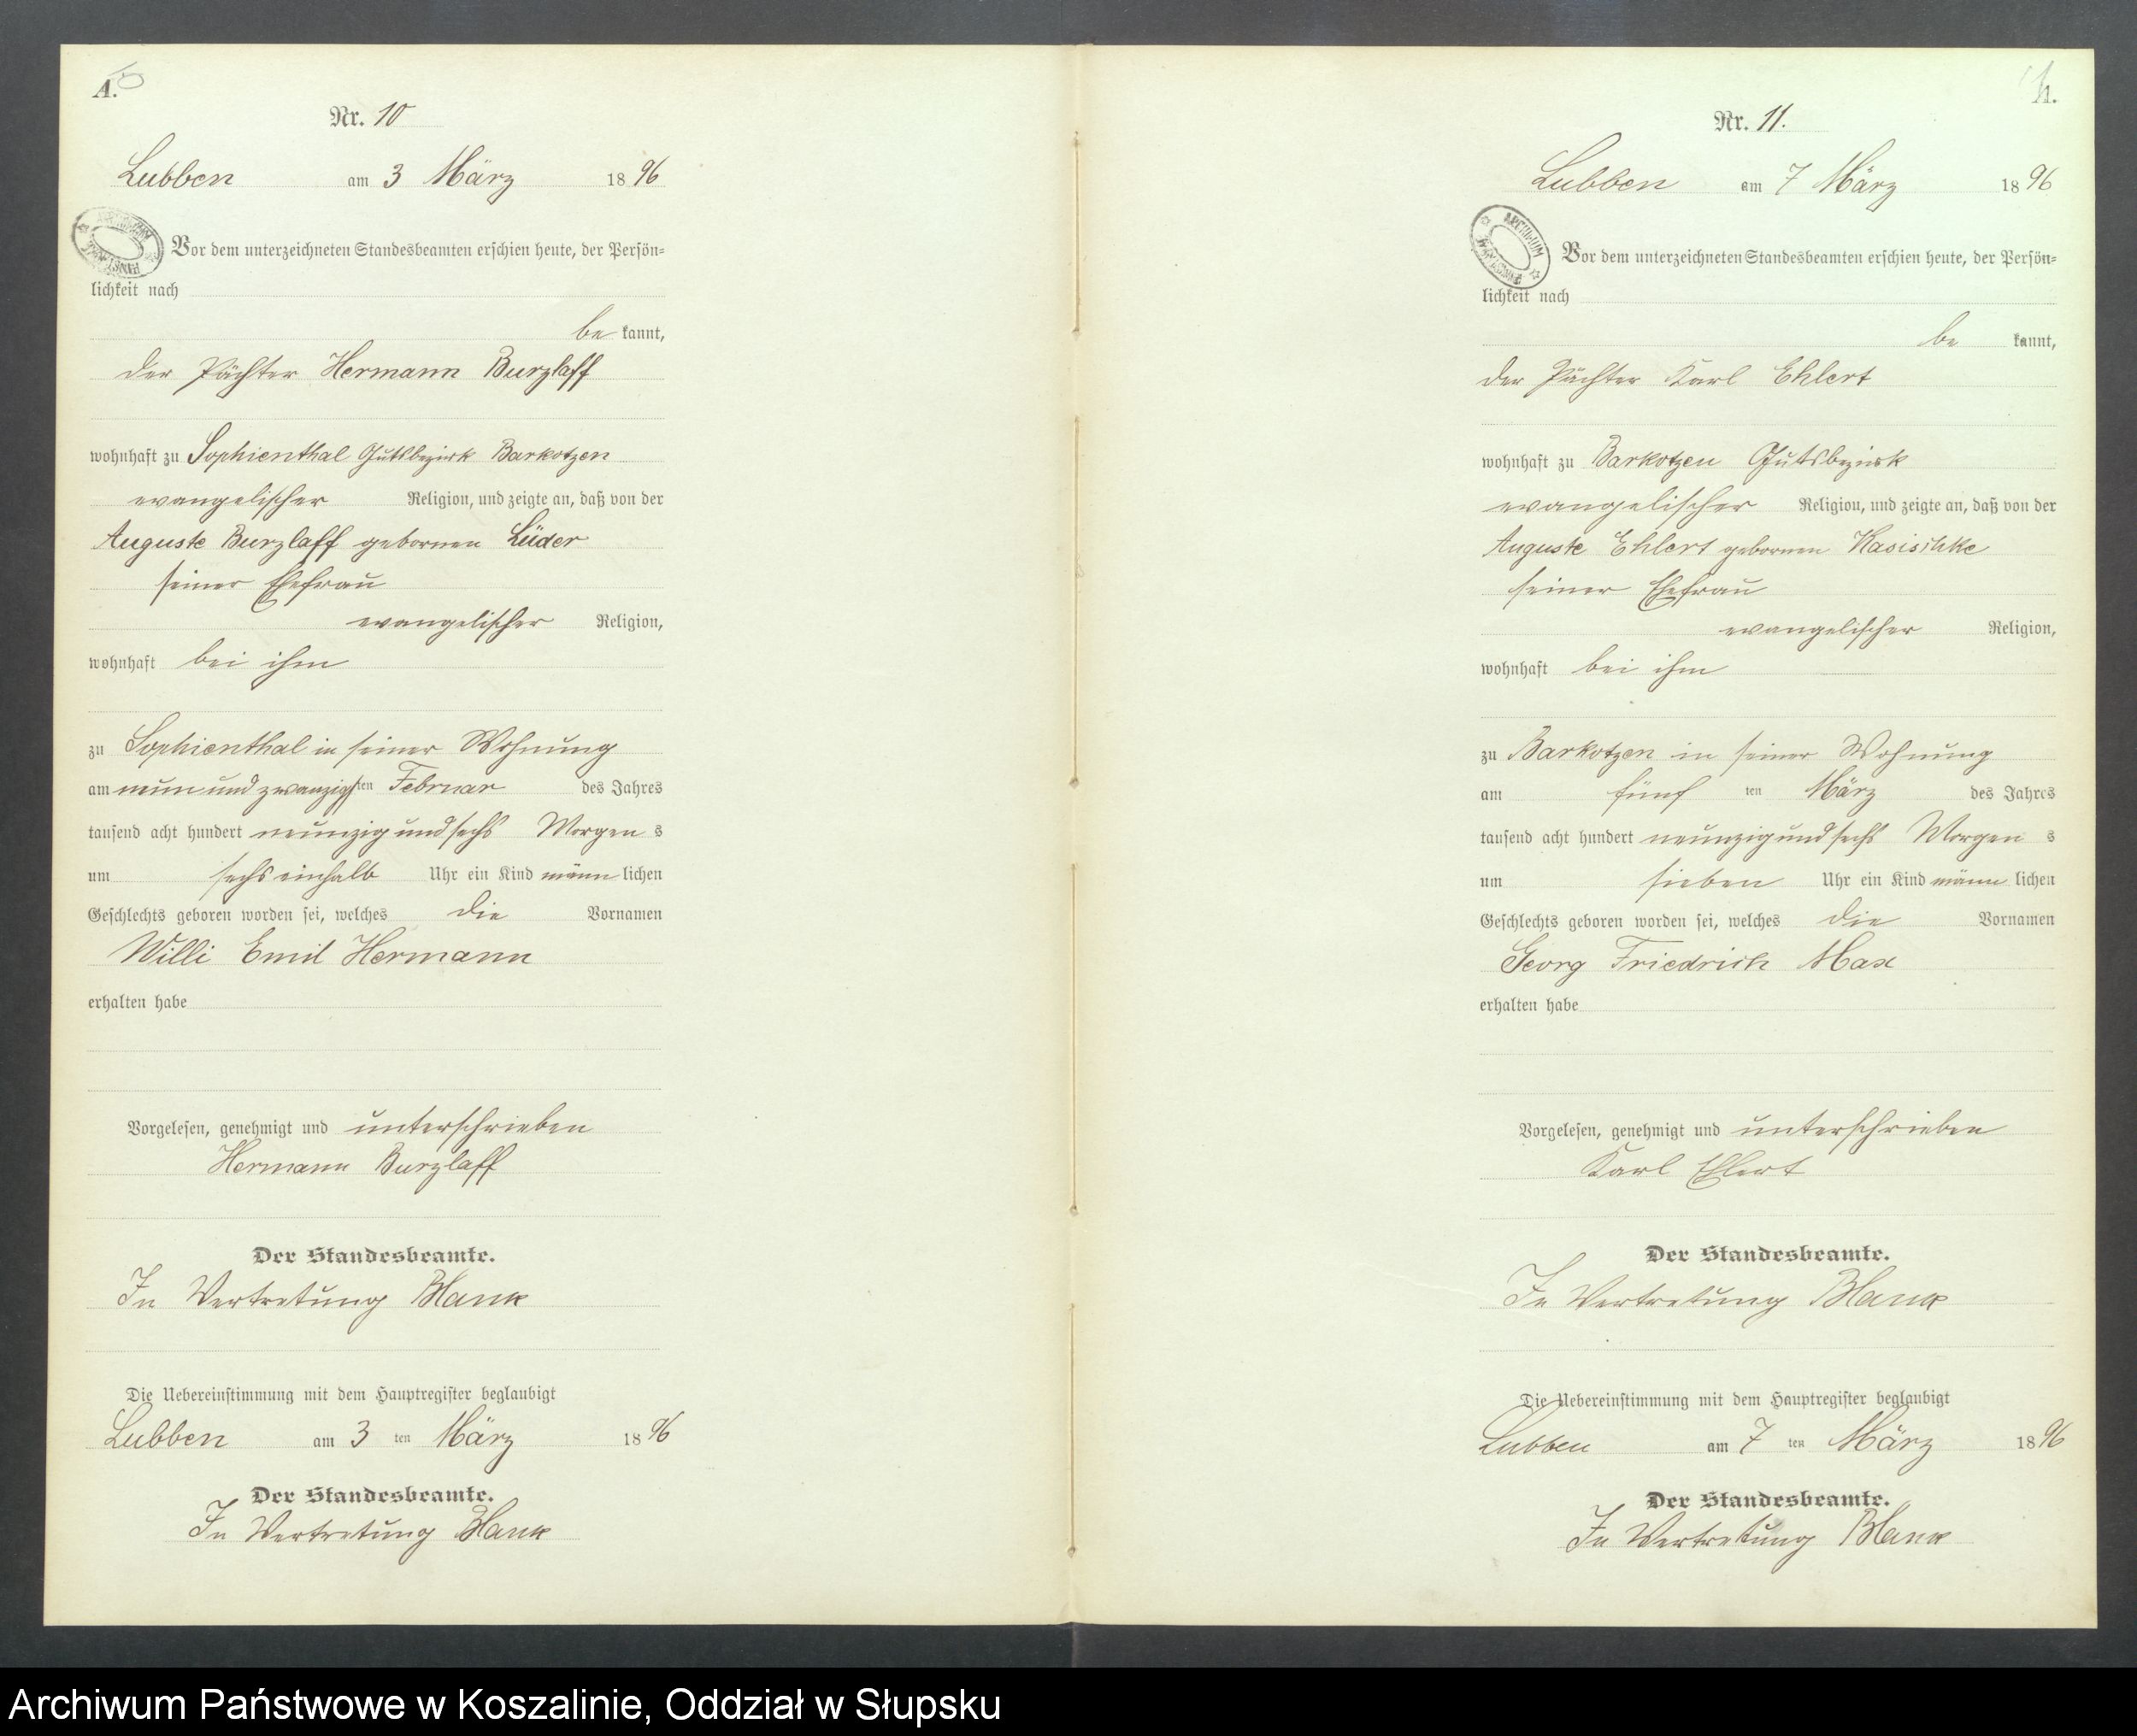 A.
Nr. 10
Lubben am 3 März 1896
Vor dem unterzeichneten Standesbeamten erschien heute, der Persön-
lichkeit nach
be kannt,
der Pächter Hermann Burzlaff
wohnhaft zu Sophienthal Gutsbezirk Barkotzen
evangelischer Religion, und zeigte an, daß von der
Auguste Burzlaff gebornen Lüder
seiner Ehefrau
evangelischer Religion,
wohnhaft bei ihm
zu Sophienthal in seiner Wohnung
am neunundzwanzigsten Februar des Jahres
tausend acht hundert neunzig und sechs Morgens
um sechs einhalb Uhr ein Kind männlichen
Geschlechts geboren worden sei, welches die Vornamen
Willi Emil Hermann
erhalten habe
Vorgelesen, genehmigt und unterschrieben
Hermann Burzlaff
Der Standesbeamte.
In Vertretung Blank
Die Uebereinstimmung mit dem Hauptregister beglaubigt
Lubben am 3 ten März 1896
Der Standesbeamte.
In Vertretung Blank
Nr. 11.
Lubben am 7 März 1896
ARCHIWUM
Vor dem unterzeichneten Standesbeamten erschien heute, der Persön-
lichkeit nach
be kannt,
der Pächter Karl Ehlert
wohnhaft zu Barkotzen Gutsbezirk
evangelischer Religion, und zeigte an, daß von der
Auguste Ehlert gebornen Kasischke
seiner Ehefrau
evangelischer Religion,
wohnhaft bei ihm
zu Barkotzen in seiner Wohnung
am fünf ten März des Jahres
tausend acht hundert neunzig und sechs Morgens
um sieben Uhr ein Kind männlichen
Geschlechts geboren worden sei, welches die Vornamen
Georg Friedrich Max
erhalten habe
Vorgelesen, genehmigt und unterschrieben
Karl Ehlert
Der Standesbeamte.
In Vertretung Blank
Die Uebereinstimmung mit dem Hauptregister beglaubigt
Lubben am 7 ten März 1896
Der Standesbeamte.
In Vertretung Blank
Archiwum Państwowe w Koszalinie, Oddział w Słupsku